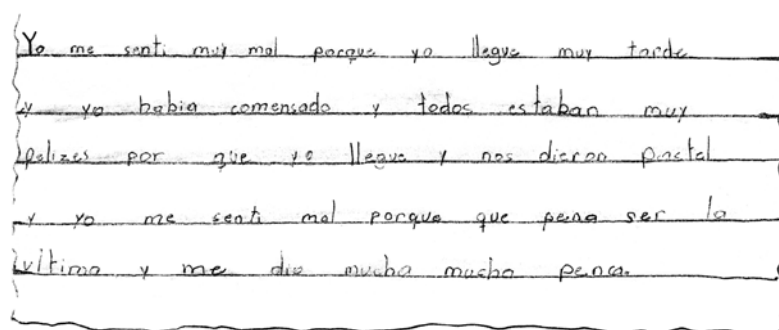 Yo me senti muy mal porque yo llegue muy tarde
y yo babia comensado y todos estaban muy
felizes por que yo llegue y nos dieron pastel
y yo me senti mal porque que pena ser la
ultima y me dio mucha mucha pena.